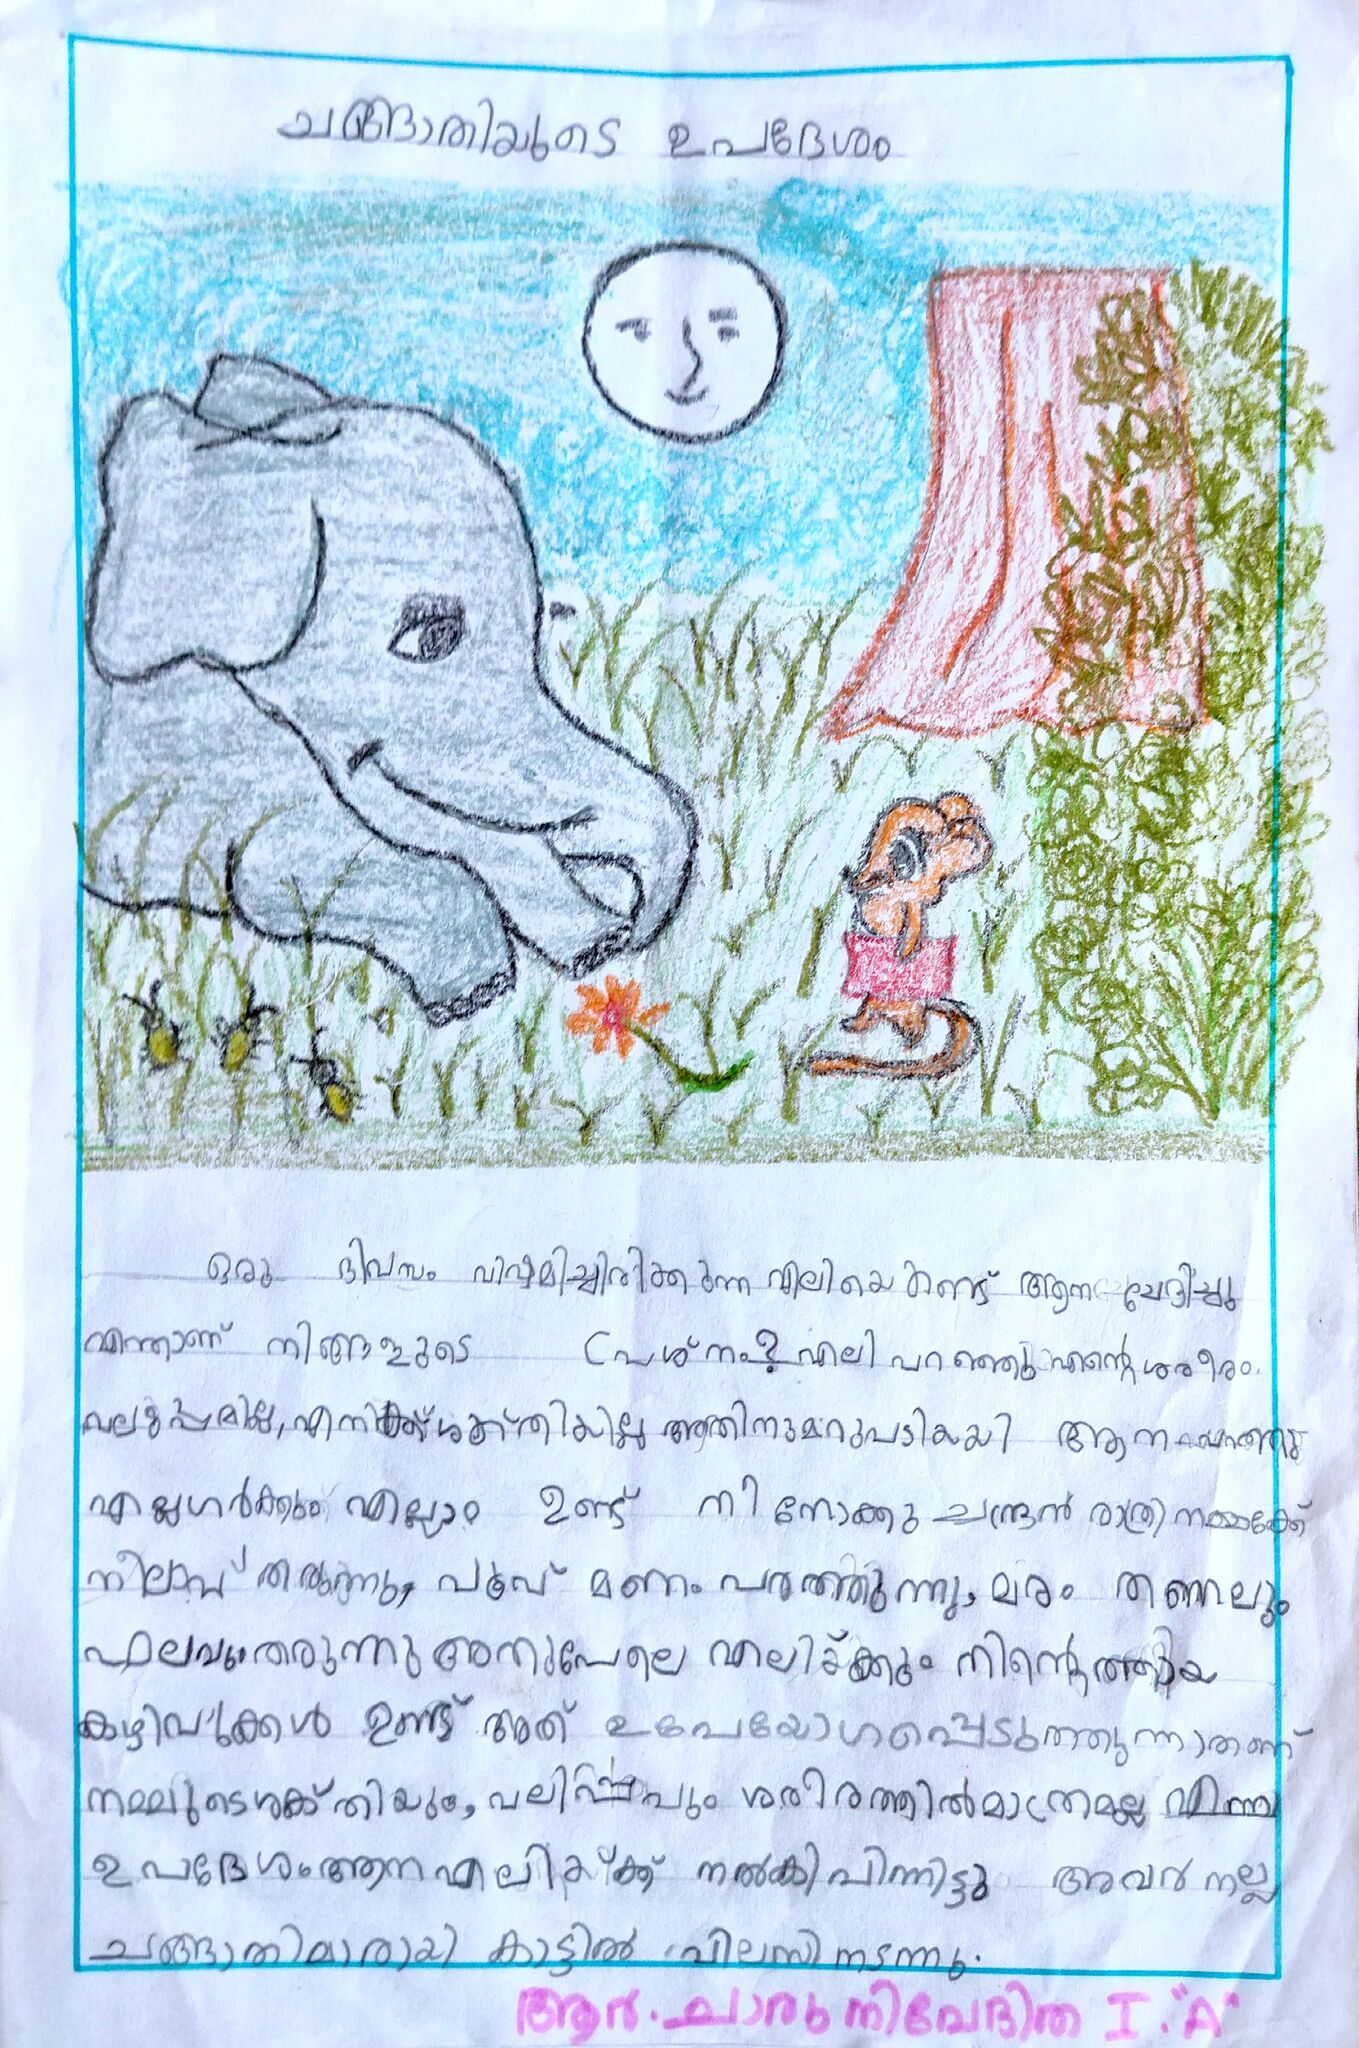 ചങ്ങാതിയുടെ ഉപദേശം
ഒരു ദിവസം വിഷമിച്ചിരിക്കുന്ന എലിയെ കണ്ട് ആന ചോദിച്ചു
എന്താണ് നിങ്ങളുടെ പ്രേശ്നം? എലി പറഞ്ഞു എന്റെ ശരീരം.
വലുപ്പമില്ല, എനിക്ക് ശക്ത്തിയില്ല അതിനു മറുപടിയായി ആന പറഞ്ഞു
എല്ലാർക്കും എല്ലാം ഉണ്ട് നീ നോക്കു ചന്ദ്രൻ രാത്രി നമ്മക്ക്
നിലാവ് തരുന്നു, പൂവ് മണം പരത്തുന്നു, മരം തണലും
ഫലവും തരുന്നു അതുപേലെ എലിയ്ക്കും നിന്റെ
കഴിവുക്കൾ ഉണ്ട് അത് ഉപേയോഗപ്പെടുത്തുന്നതാണ്
നമ്മുടെ ശക്ക്തിയും, വലിപ്പവും ശരീരത്തിൽ മാത്രമല്ല എന്ന
ഉപദേശം ആന എലിയ്ക്ക് നൽകി പിന്നിട്ടു അവർ നല്ല
ചങ്ങാതിമാരായി കാട്ടിൽ വിലസി നടന്നു.
ആർ. ചാരു നിവേദിത I. "A"